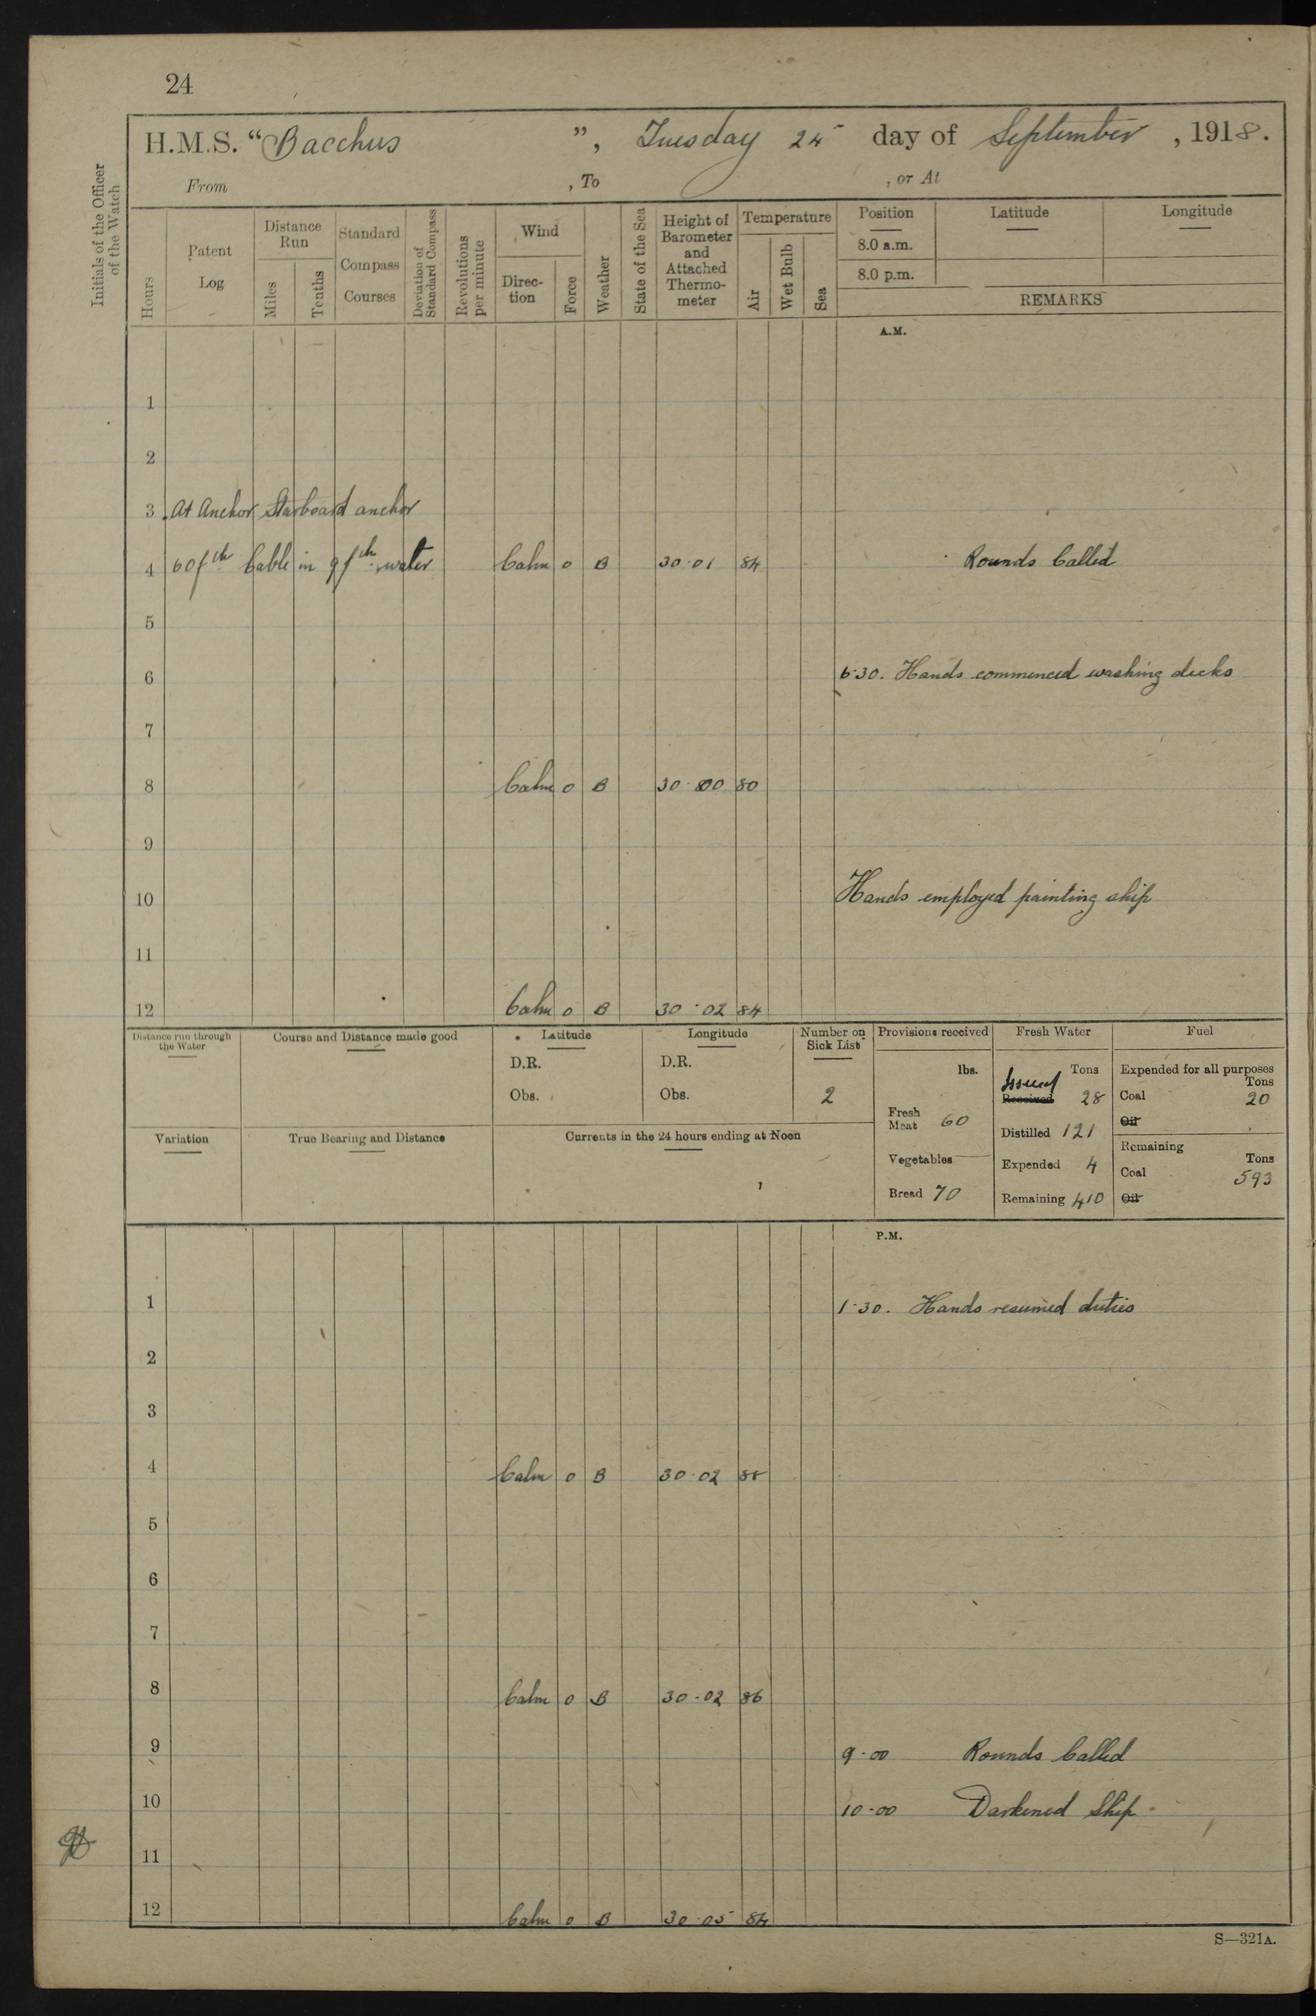 24
H.M.S. "Bacchus", Tuesday 24 day of September, 1918.
From , To , or At
Initials of the Officer of the Watch
Hours
Patent Log
Distance Run
Miles
Tenths
Standard Compass Courses
Deviation of Standard Compass
Revolutions per minute
Wind
Direction
Force
Weather
State of the Sea
Height of Barometer and Attached Thermometer
Temperature
Air
Wet Bulb
Sea
Position Latitude Longitude
8.0 a.m.
8.0 p.m.
REMARKS
A.M.
1
2
3 At Anchor Starboard anchor
4 60 fth Cable in 9 fth water Calm 0 B 30·01 84 Rounds Called
5
6 6·30. Hands commenced washing decks
7
8 Calm 0 B 30·00 80
9
10 Hands employed painting ship
11
12 Calm 0 B 30·02 84
Distance run through the Water
Course and Distance made good
Latitude
D.R.
Obs.
Longitude
D.R.
Obs.
Number on Sick List
2
Variation
True Bearing and Distance
Currents in the 24 hours ending at Noon
Provisions received
lbs.
Fresh Meat 60
Vegetables
Bread 70
Fresh Water
Tons
Issued
Received 28
Distilled 121
Expended 4
Remaining 410
Fuel
Expended for all purposes
Tons
Coal 20
Oil
Remaining
Tons
Coal 593
Oil
P.M.
1 1·30. Hands resumed duties
2
3
4 Calm 0 B 30·02 88
5
6
7
8 Calm 0 B 30·02 86
9 9·00 Rounds Called
10 10·00 Darkened Ship
11
12 Calm 0 B 30·05 84
S—321A.